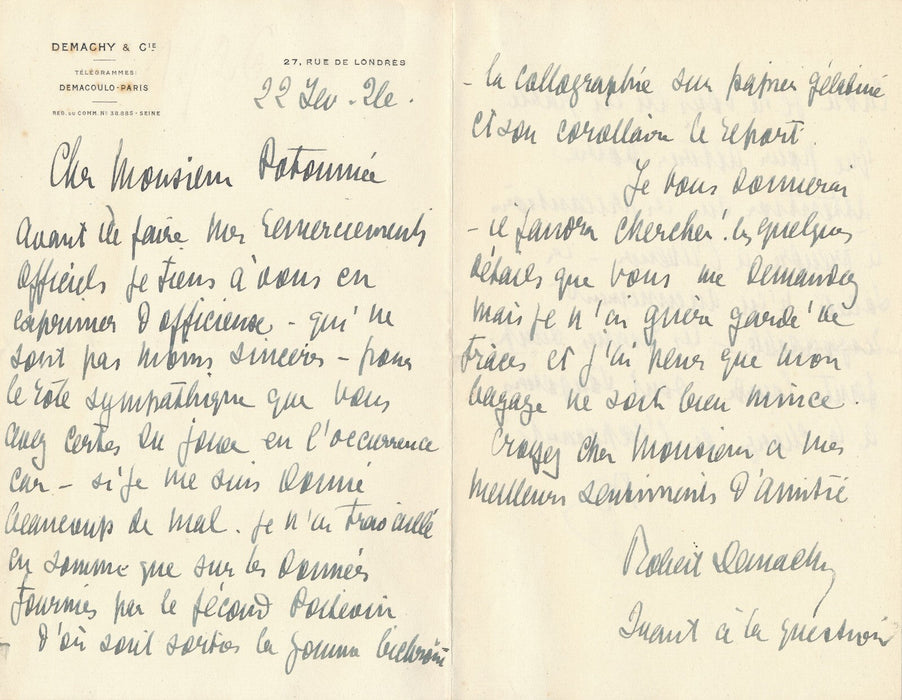 DEMACHY & CIE
27, RUE DE LONDRES
TÉLÉGRAMMES:
DEMACOULO-PARIS
REG. DU COMM. N° 38.885 - SEINE
22
Cher Monsieur Potonniée
Avant de faire mes remerciements
officiels je tiens à vous en
exprimer d'officieux - qui ne
sont pas moins sincères - pour
le rôle sympathique que vous
avez certes du jouer en l'occurrence
car - si je me suis donné
beaucoup de mal. je n'ai travaillé
en somme que sur les données
fournies par le fécond Poitevin
D'où sont sorties la gomme bichromatée
- la collographie sur papier gélatiné
et son corollaire le report.
Je vous donnerai
- je faudra chercher. les quelques
détails que vous me demandez
mais je n'ai guère gardé de
traces et j'ai peur que mon
bagage ne soit bien mince.
Croyez cher Monsieur à mes
meilleurs sentiments d'amitié
Robert Demachy
Quant à la question